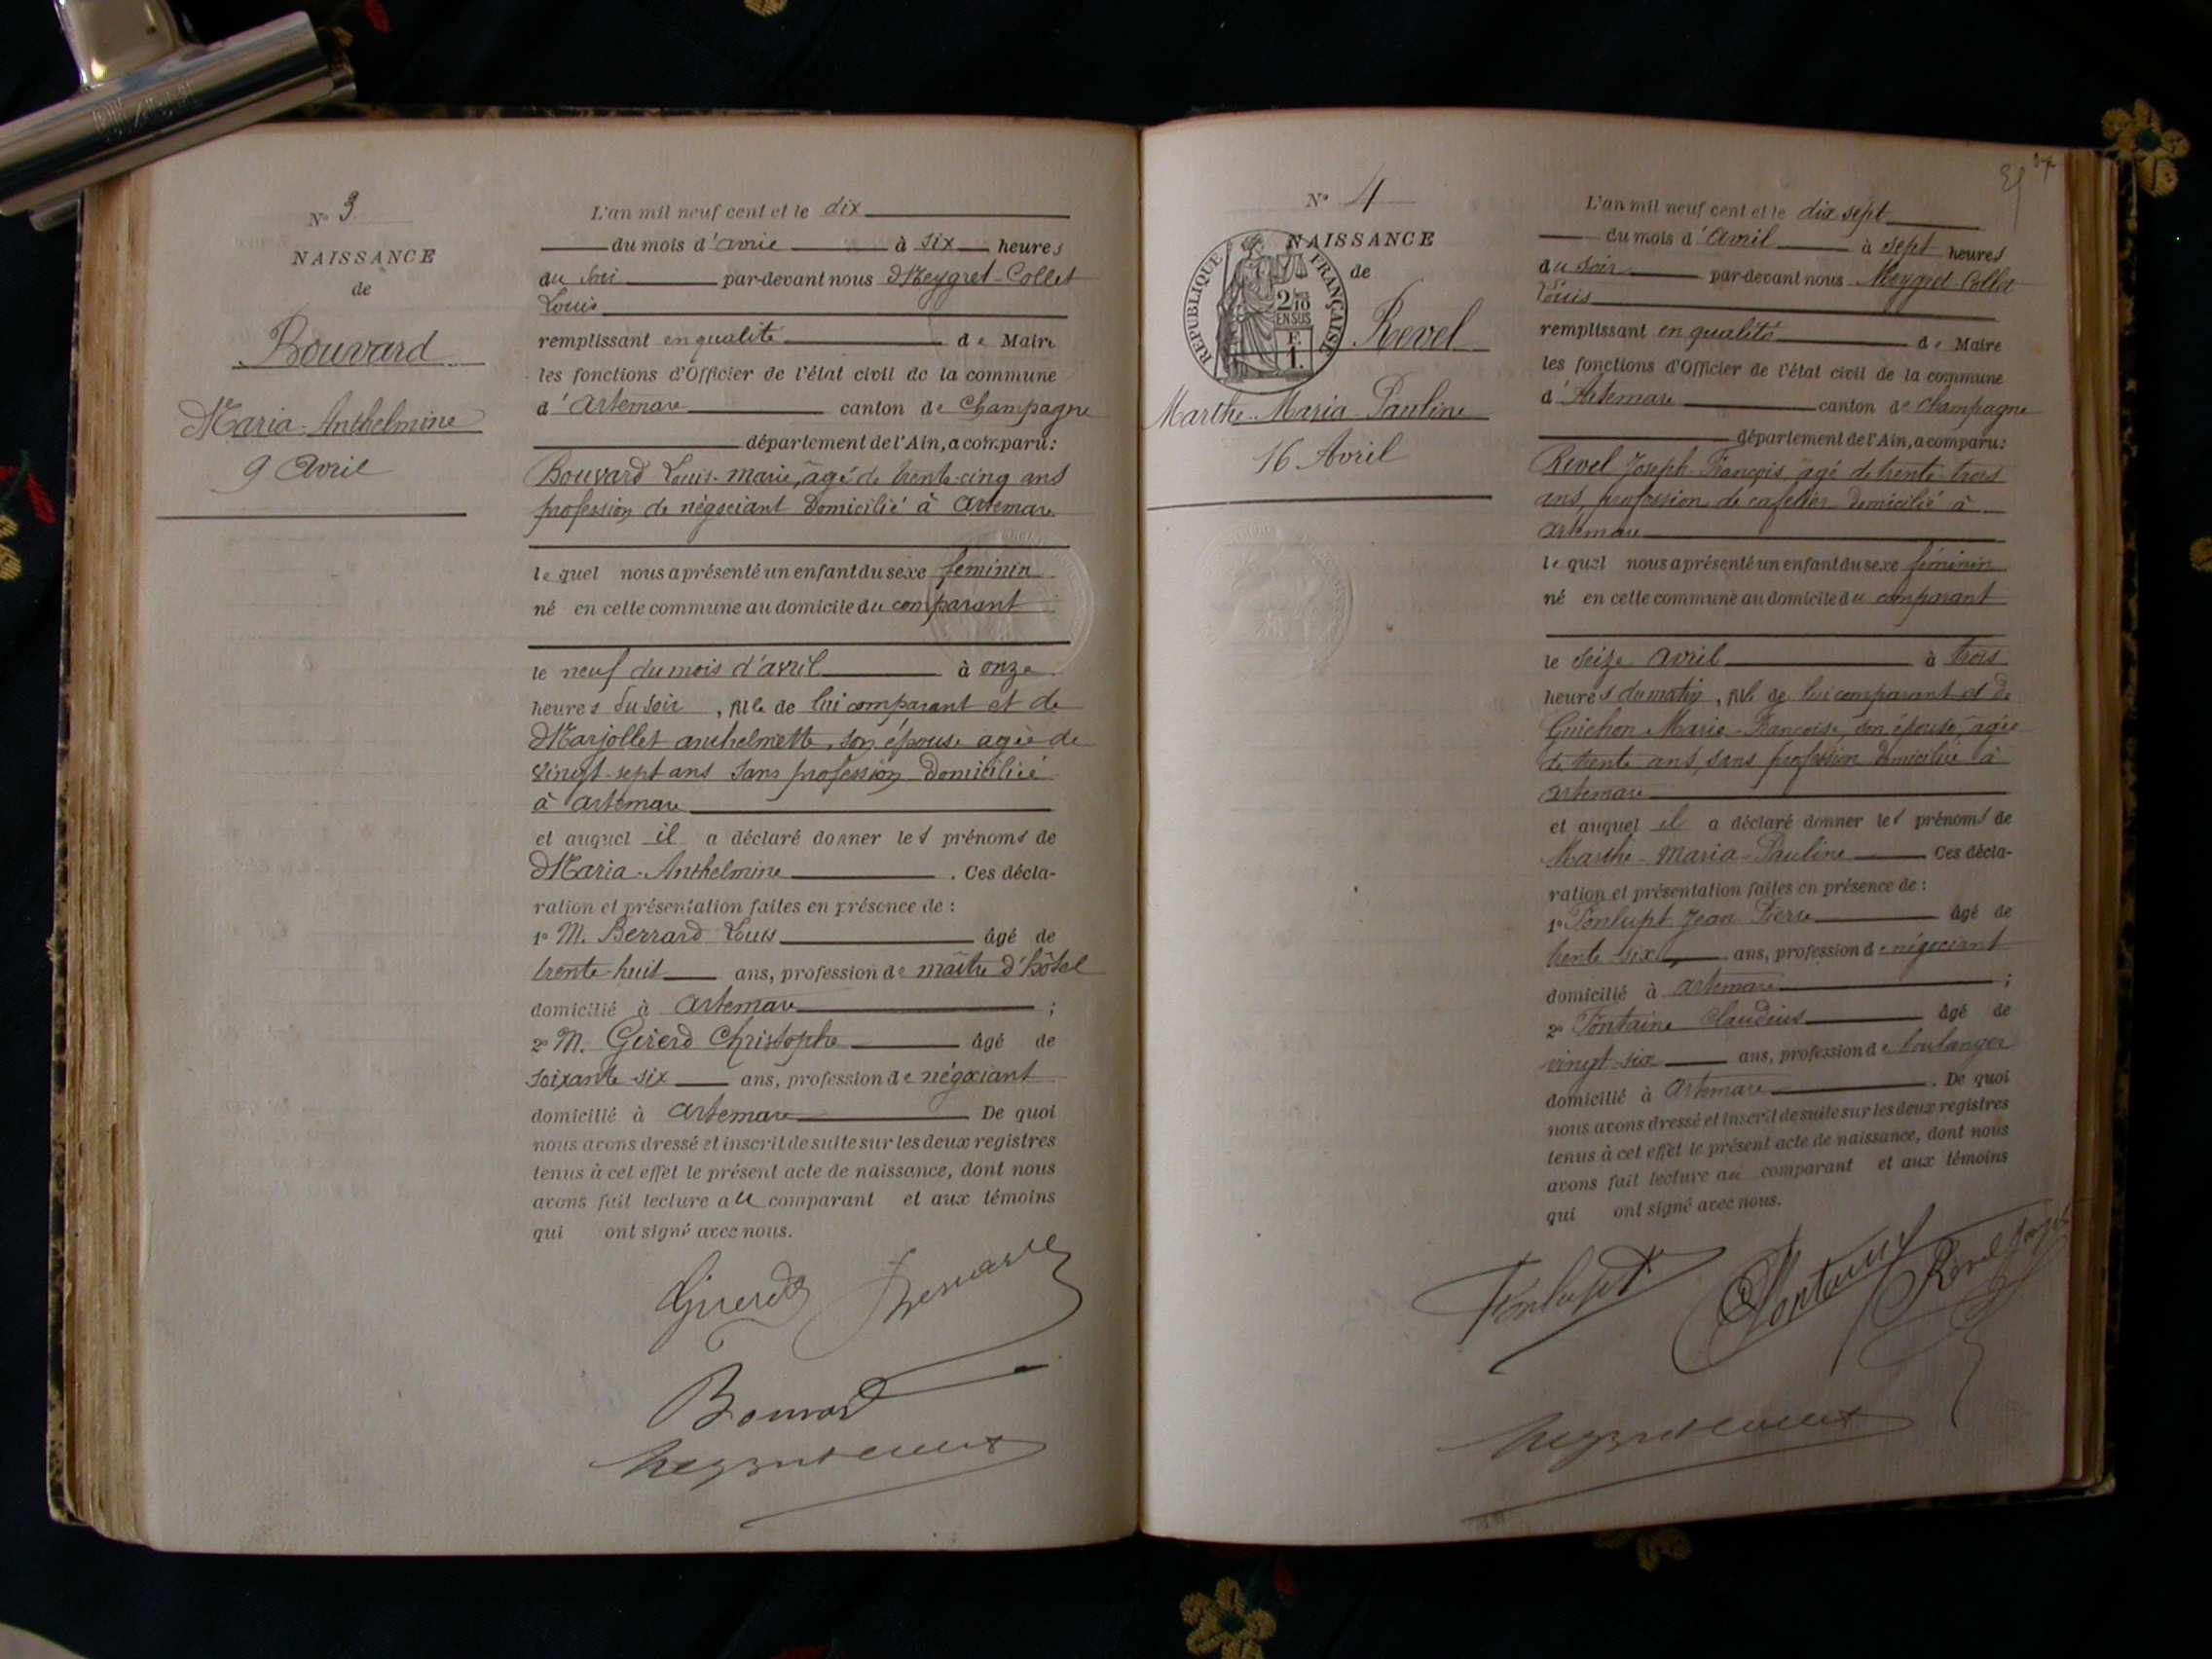 N° 3
NAISSANCE
de
Bouvard
Maria-Anthelmine
9 Avril
L'an mil neuf cent et le dix
du mois d'avril à six heures
du soir par-devant nous Meygret-Collet
Louis
remplissant en qualité de Maire
les fonctions d'Officier de l'état civil de la commune
d'Artemare canton de Champagne
département de l'Ain, a comparu:
Bouvard Louis-Marie, âgé de trente-cinq ans
profession de négociant domicilié à Artemare
lequel nous a présenté un enfant du sexe féminin
né en cette commune au domicile du comparant
le neuf du mois d'avril à onze
heures du soir, fille de lui comparant et de
Marjollet anthelmette, son épouse agée de
vingt-sept ans sans profession domiciliée
à artemare
et auquel il a déclaré donner les prénoms de
Maria-Anthelmine. Ces décla-
ration et présentation faites en présence de :
1° M. Berrard Louis âgé de
trente-huit ans, profession de maître d'hôtel
domicilié à Artemare ;
2° M. Girerd Christophe âgé de
soixante six ans, profession de négociant
domicilié à Artemare De quoi
nous avons dressé et inscrit de suite sur les deux registres
tenus à cet effet le présent acte de naissance, dont nous
avons fait lecture au comparant et aux témoins
qui ont signé avec nous.
Girerd
Bouvard
N° 4
NAISSANCE
de
REPUBLIQUE FRANÇAISE
2/10
EN SUS
F.
1.
Revel
Marthe-Maria-Pauline
16 Avril
L'an mil neuf cent et le dix sept
du mois d'Avril à sept heures
du soir par-devant nous Meygret-Collet
Louis
remplissant en qualité de Maire
les fonctions d'Officier de l'état civil de la commune
d'Artemare canton de Champagne
département de l'Ain, a comparu:
Revel Joseph-François âgé de trente-trois
ans, profession de cafetier domicilié à
Artemare
lequel nous a présenté un enfant du sexe féminin
né en cette commune au domicile du comparant
le seize avril à trois
heures du matin, fille de lui comparant et de
Guichon Marie-Françoise, son épouse, agée
de trente ans, sans profession domiciliée à
artemare
et auquel il a déclaré donner les prénoms de
Marthe-Maria-Pauline Ces décla-
ration et présentation faites en présence de :
1° Ponlupt Jean Pierre âgé de
trente-six ans, profession de négociant
domicilié à Artemare ;
2° Fontaine Claudius âgé de
vingt-six ans, profession de boulanger
domicilié à Artemare. De quoi
nous avons dressé et inscrit de suite sur les deux registres
tenus à cet effet le présent acte de naissance, dont nous
avons fait lecture au comparant et aux témoins
qui ont signé avec nous.
Ponlupt
Revel Joseph